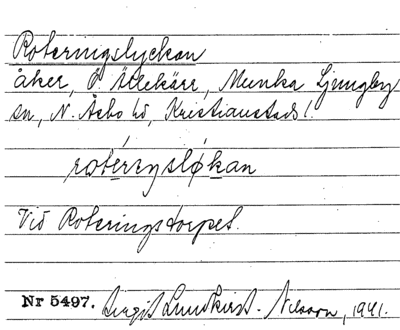 Roteringslyckan
åker, Ö. Ållekärr, Munka Ljungby
sn, N. Åsbo hd, Kristianstads l.
rotéreŋsløkan
Vid Roteringstorpet.
Nr 5497. Birgit Lundkvist-Nilsson, 1941.